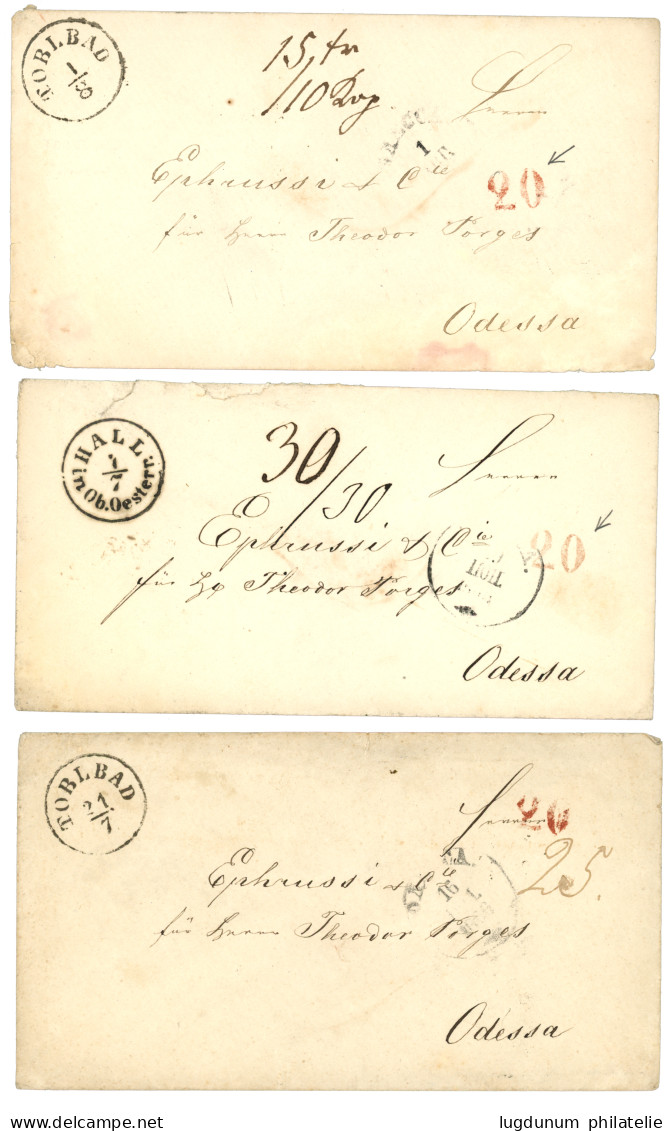 TOBLBAD
1/8
15
/10 Kop
Herrn
1
20
Ephrussi & Cie
für Herrn Theodor Porges
Odessa
HALL
1/7
in Ob.Oesterr.
30/30
Herrn
Ephrussi & Cie
20
für Hr Theodor Porges
Odessa
TOBLBAD
21/7
20
Herrn
25.
16
Ephrussi & Cie
für Herrn Theodor Porges
Odessa
delcampe.net
lugdunum philatelie